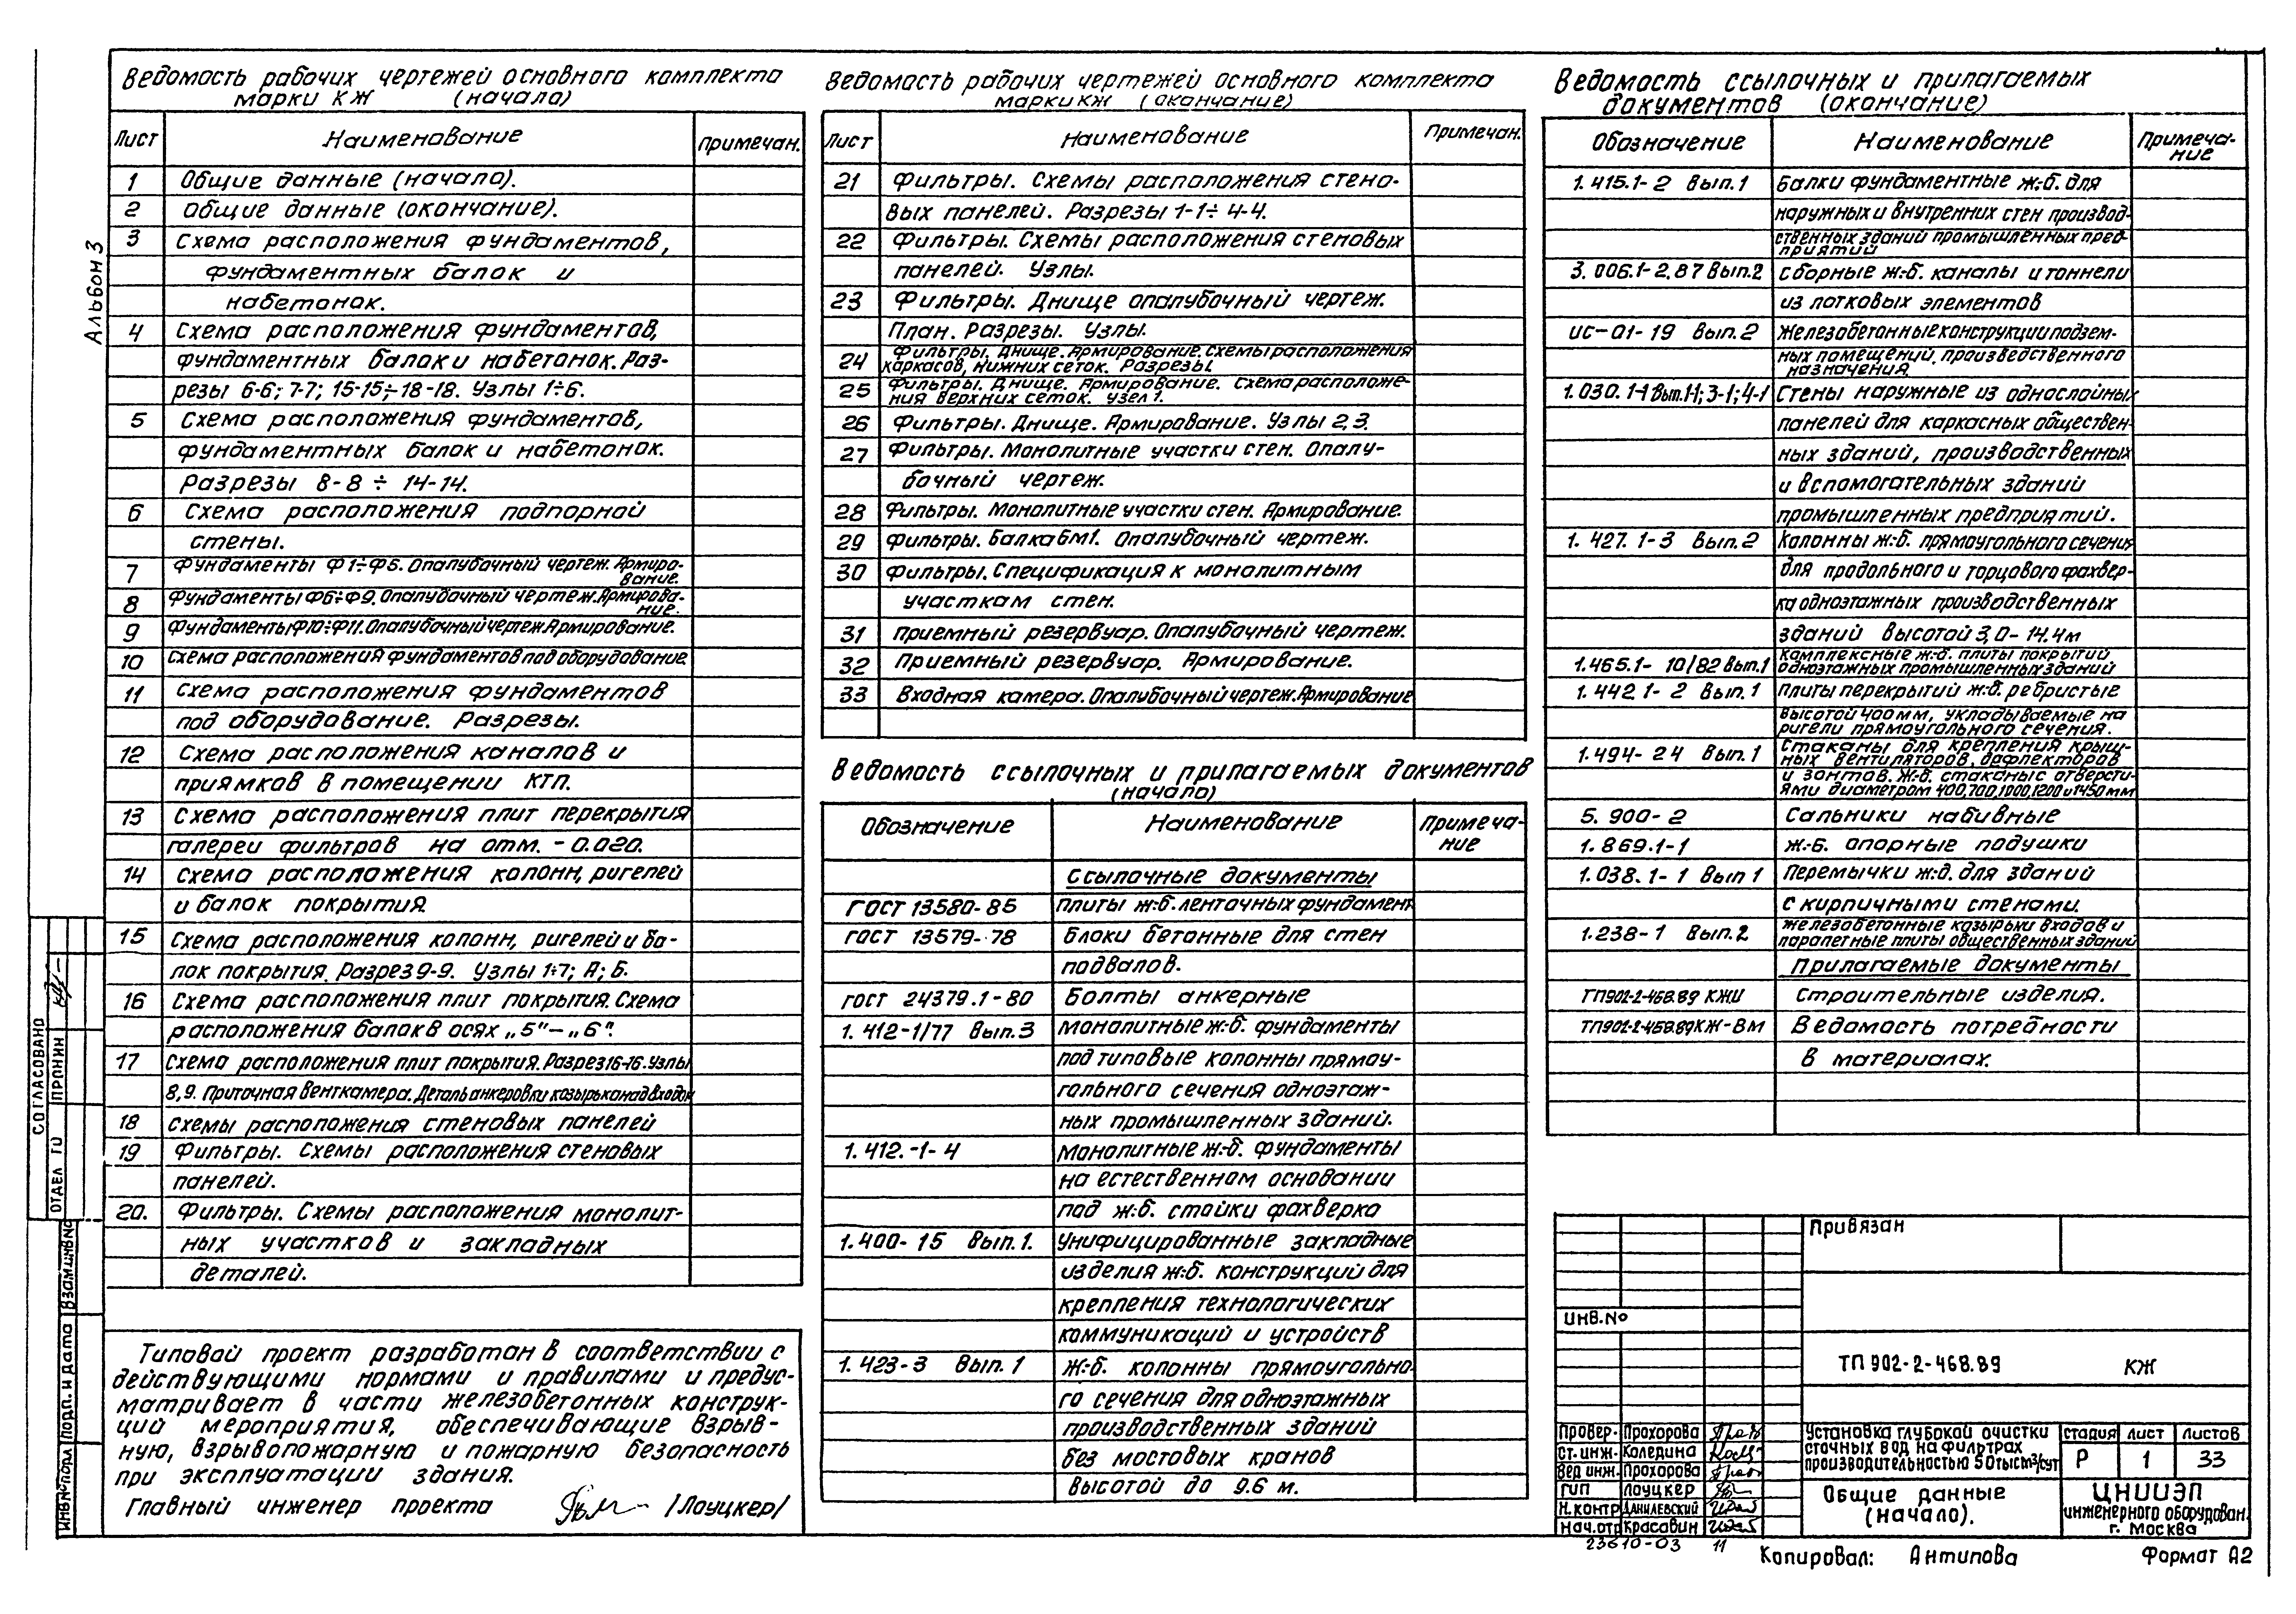 Альбом 3
Ведомость рабочих чертежей основного комплекта
марки КЖ (начало)
Лист Наименование Примечан.
1 Общие данные (начало).
2 Общие данные (окончание).
3 Схема расположения фундаментов,
фундаментных балок и
набетонок.
4 Схема расположения фундаментов,
фундаментных балок и набетонок. Раз-
резы 6-6; 7-7; 15-15÷18-18. Узлы 1÷6.
5 Схема расположения фундаментов,
фундаментных балок и набетонок.
Разрезы 8-8 ÷ 14-14.
6 Схема расположения подпорной
стены.
7 Фундаменты Ф1÷Ф5. Опалубочный чертеж. Армиро-
вание.
8 Фундаменты Ф6÷Ф9. Опалубочный чертеж. Армирова-
ние.
9 Фундаменты Ф10÷Ф11. Опалубочный чертеж Армирование.
10 Схема расположения фундаментов под оборудование
11 Схема расположения фундаментов
под оборудование. Разрезы.
12 Схема расположения каналов и
приямков в помещении КТП.
13 Схема расположения плит перекрытия
галереи фильтров на отм. -0.020.
14 Схема расположения колонн, ригелей
и балок покрытия
15 Схема расположения колонн, ригелей и ба-
лок покрытия. Разрез 9-9. Узлы 1÷7; А; Б.
16 Схема расположения плит покрытия. Схема
расположения балок в осях „5"—„6".
17 Схема расположения плит покрытия. Разрез 16-16. Узлы
8,9. Приточная венткамера. Деталь анкеровки козырька над входом
18 Схемы расположения стеновых панелей
19 Фильтры. Схемы расположения стеновых
панелей.
20. Фильтры. Схемы расположения монолит-
ных участков и закладных
деталей.
Типовой проект разработан в соответствии с
действующими нормами и правилами и предус-
матривает в части железобетонных конструк-
ций мероприятия, обеспечивающие взрыв-
ную, взрывопожарную и пожарную безопасность
при эксплуатации здания.
Главный инженер проекта /Лоуцкер/
Ведомость рабочих чертежей основного комплекта
марки КЖ (окончание)
Лист Наименование Примечан.
21 Фильтры. Схемы расположения стено-
вых панелей. Разрезы 1-1÷4-4.
22 Фильтры. Схемы расположения стеновых
панелей. Узлы.
23 Фильтры. Днище опалубочный чертеж.
План. Разрезы. Узлы.
24 Фильтры. Днище. Армирование. Схемы расположения
каркасов, нижних сеток. Разрезы.
25 Фильтры. Днище. Армирование. Схема расположе-
ния верхних сеток. Узел 1.
26 Фильтры. Днище. Армирование. Узлы 2,3.
27 Фильтры. Монолитные участки стен. Опалу-
бочный чертеж.
28 Фильтры. Монолитные участки стен. Армирование.
29 Фильтры. Балка Бм1. Опалубочный чертеж.
30 Фильтры. Спецификация к монолитным
участкам стен.
31 Приемный резервуар. Опалубочный чертеж.
32 Приемный резервуар. Армирование.
33 Входная камера. Опалубочный чертеж. Армирование
Ведомость ссылочных и прилагаемых документов
(начало)
Обозначение Наименование Примеча-
ние
Ссылочные документы
ГОСТ 13580-85 Плиты ж.-б. ленточных фундамент
ГОСТ 13579-78 Блоки бетонные для стен
подвалов.
ГОСТ 24379.1-80 Болты анкерные
1.412-1/77 Вып.3 Монолитные ж.-б. фундаменты
под типовые колонны прямоу-
гольного сечения одноэтаж-
ных промышленных зданий.
1.412.-1-4 Монолитные ж.-б. фундаменты
на естественном основании
под ж.-б. стойки фахверка
1.400-15 Вып.1. Унифицированные закладные
изделия ж.-б. конструкций для
крепления технологических
коммуникаций и устройств
1.423-3 Вып. 1 Ж.-б. колонны прямоугольно-
го сечения для одноэтажных
производственных зданий
без мостовых кранов
высотой до 9.6 м.
Ведомость ссылочных и прилагаемых
документов (окончание)
Обозначение Наименование Примеча-
ние
1.415.1-2 Вып.1 Балки фундаментные ж.-б. для
наружных и внутренних стен производ-
ственных зданий промышленных пред-
приятий
3.006.1-2.87 Вып.2 Сборные ж.-б. каналы и тоннели
из лотковых элементов
ИС-01-19 Вып.2 Железобетонные конструкции подзем-
ных помещений, произведственного
назначения.
1.030.1-1 Вып.1-1; 3-1; 4-1 Стены наружные из однослойных
панелей для каркасных обществен-
ных зданий, производственных
и вспомогательных зданий
промышленных предприятий.
1.427.1-3 Вып.2 Колонны ж.-б. прямоугольного сечения
для продольного и торцового фахвер-
ка одноэтажных производственных
зданий высотой 3,0-14,4м
1.465.1-10/82 Вып.1 Комплексные ж.-б. плиты покрытий
одноэтажных промышленных зданий
1.442.1-2 Вып.1 Плиты перекрытий ж.-б. ребристые
высотой 400мм, укладываемые на
ригели прямоугольного сечения.
1.494-24 Вып.1 Стаканы для крепления крыш-
ных вентиляторов, дефлекторов
и зонтов. Ж.-б. стаканы с отверсти-
ями диаметром 400,700,1000,1200 и 1450 мм
5.900-2 Сальники набивные
1.869.1-1 Ж.-б. опорные подушки
1.038.1-1 Вып 1 Перемычки ж.-б. для зданий
с кирпичными стенами.
1.238-1 Вып.2 Железобетонные козырьки входов и
парапетные плиты общественных зданий
Прилагаемые документы
ТП902-2-468.89 КЖИ Строительные изделия.
ТП902-2-468.89 КЖ-ВМ Ведомость потребности
в материалах.
СОГЛАСОВАНО
ОТДЕЛ ГО ПРОНИН
Взам.инв.№
Подп. и дата
Инв.№ подл
Привязан
Инв.№
ТП 902-2-468.89 КЖ
Провер. Прохорова
Ст.инж. Коледина
Вед инж. Прохорова
ГИП Лоуцкер
Н.контр Данилевский
Нач.отд Красавин
Установка глубокой очистки
сточных вод на фильтрах
производительностью 50тыс м³/сут
стадия лист листов
Р 1 33
Общие данные
(начало).
ЦНИИЭП
инженерного оборудован.
г. Москва
23610-03 11
Копировал: Антипова Формат А2